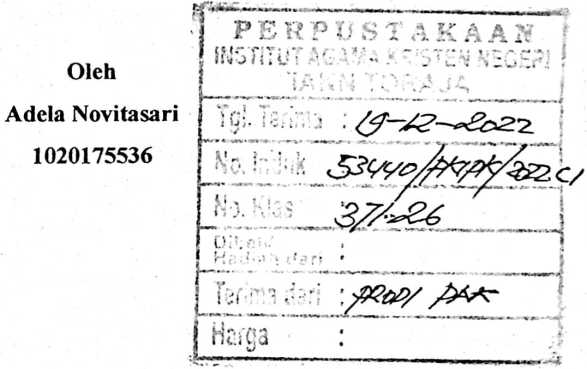 Oleh
Adela Novitasari
1020175536
PERPUSTAKAAN
INSTITUT AGAMA KRISTEN NEGERI
IAKN TORAJA
Tgl. Terima : 19-12-2022
No. Induk 53440/PKPAK/2022 C1
No. Klas 371.26
Dibeli/
Hadiah dari :
Terima dari : PRODI PAK
Harga :